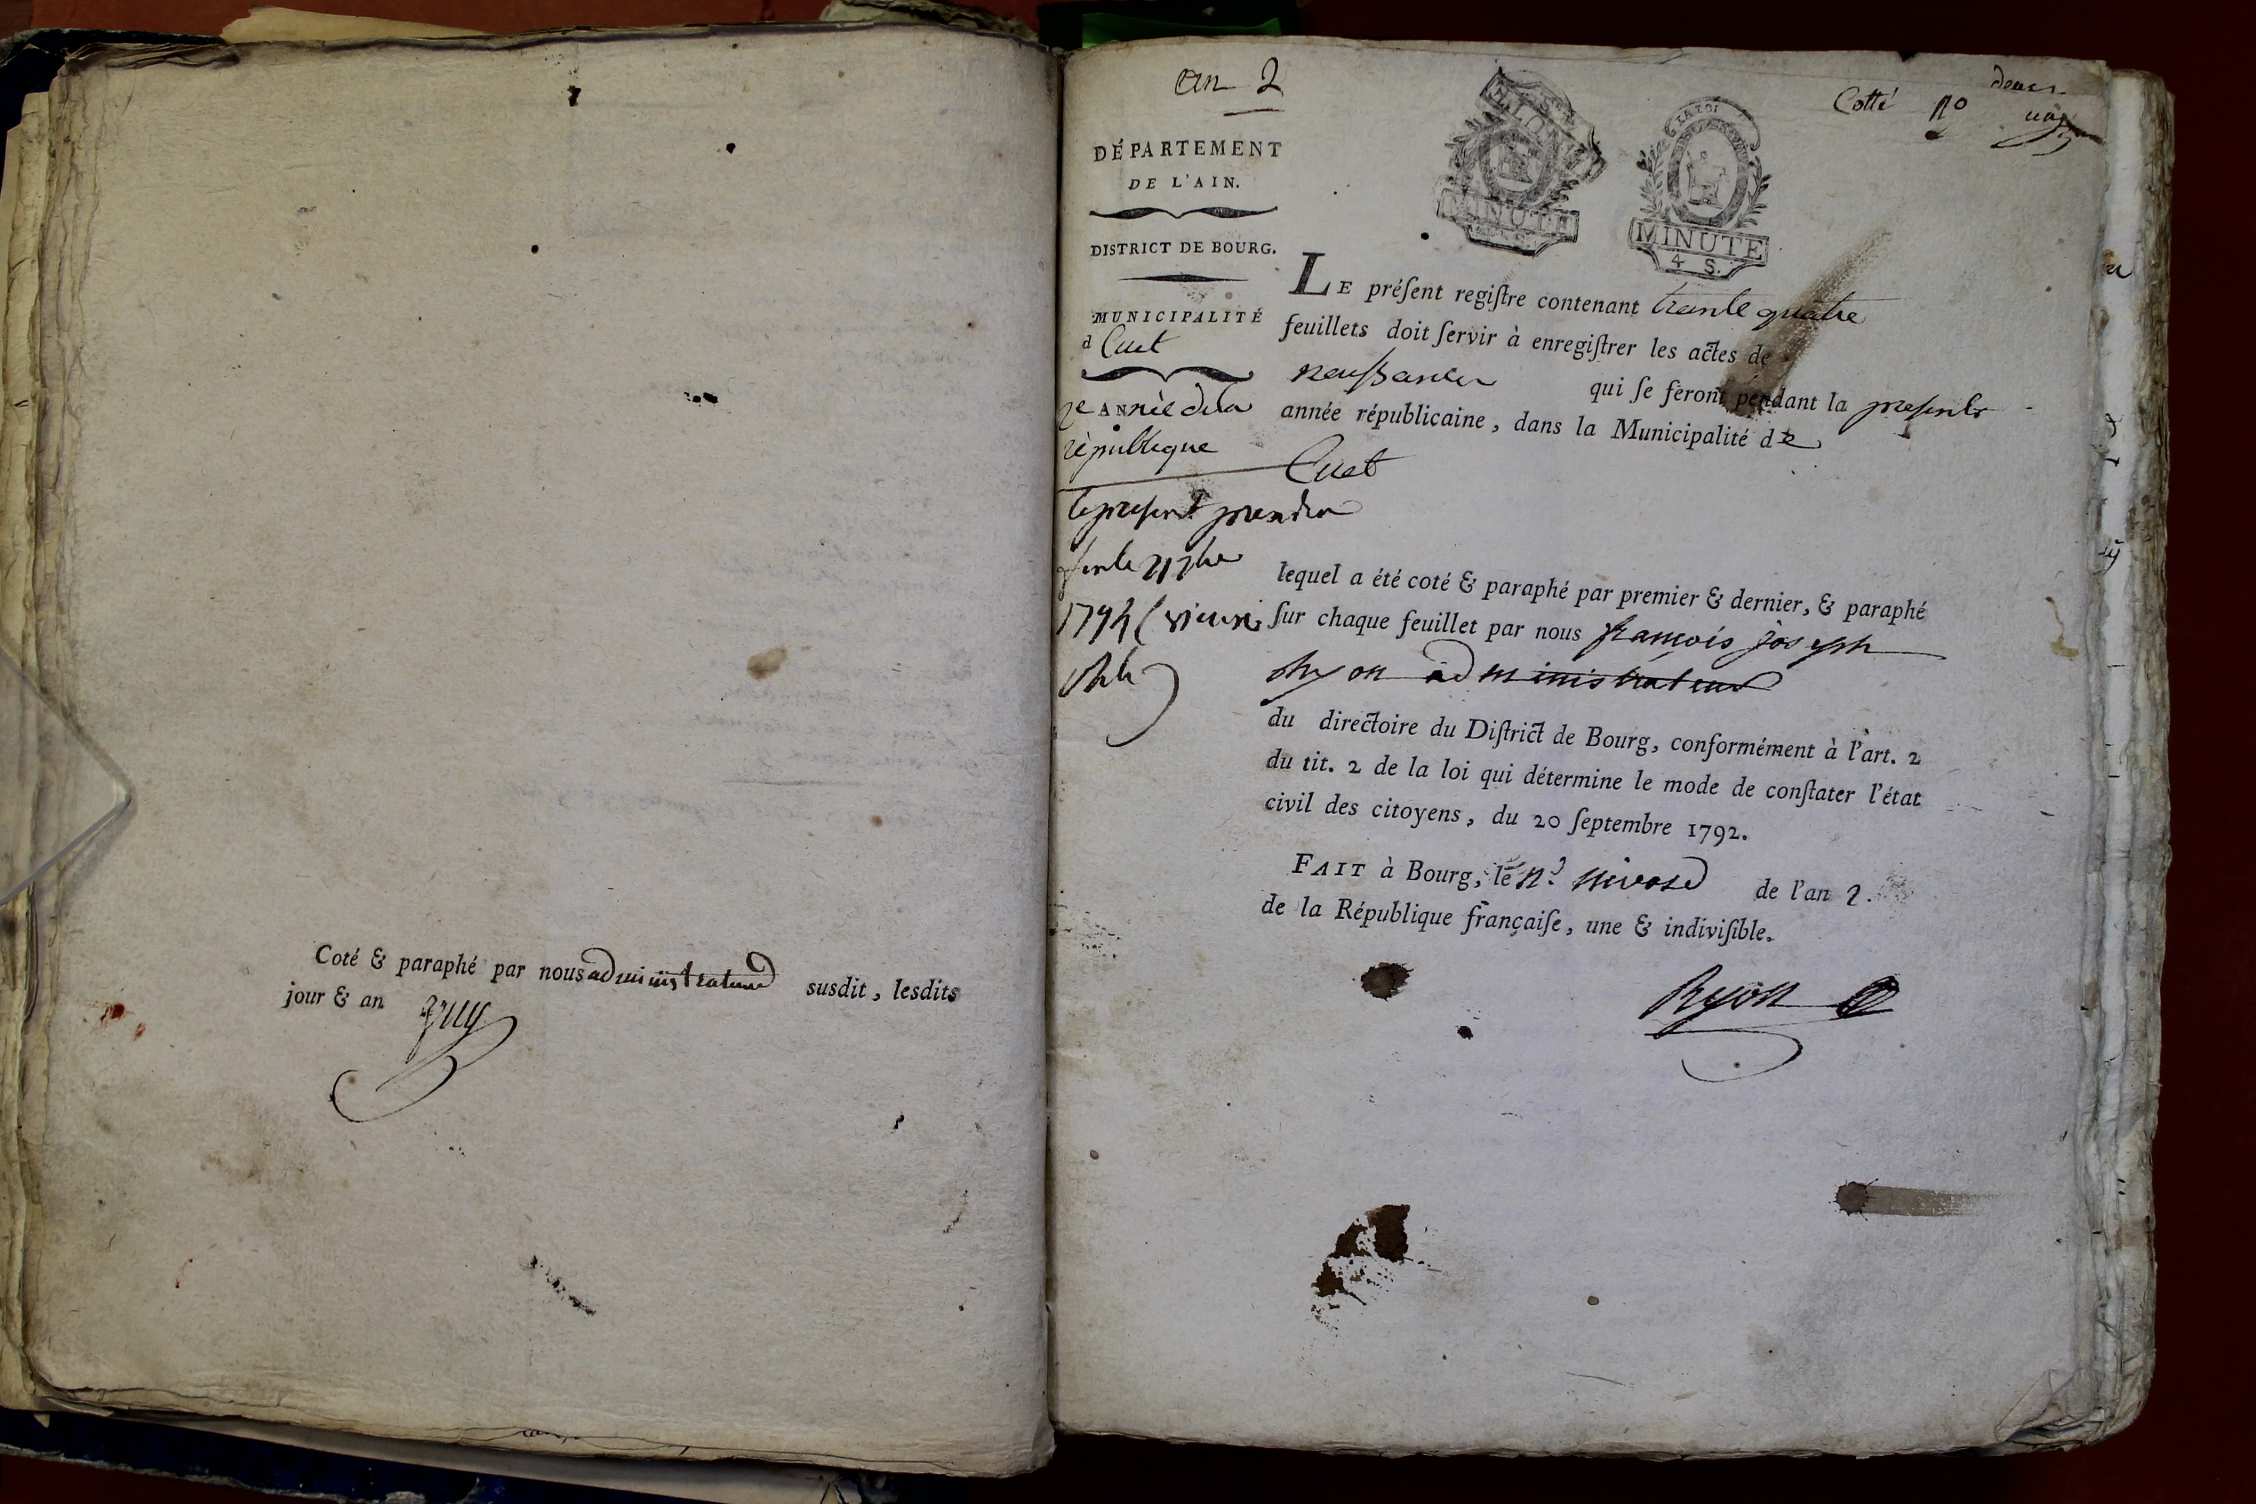 Coté & paraphé par nous administrateur susdit, lesdits
jour & an
an 2
DÉPARTEMENT
DE L'AIN.
DISTRICT DE BOURG.
MUNICIPALITÉ
d Cuet
2e ANnée de la
république
le present prendra
fin le 21 7bre
1794 (vieux
stile)
LA LOI
MINUTE
MINUTE
4 S.
Cotté no
LE préſent regiſtre contenant trante quatre
feuillets doit ſervir à enregiſtrer les actes de
naissances qui ſe feront pendant la presente
année républicaine, dans la Municipalité de
Cuet
lequel a été coté & paraphé par premier & dernier, & paraphé
ſur chaque feuillet par nous françois joseph
Ryon administrateur
du directoire du Diſtrict de Bourg, conformément à l'art. 2
du tit. 2 de la loi qui détermine le mode de conſtater l'état
civil des citoyens, du 20 ſeptembre 1792.
FAIT à Bourg, le nivose de l'an 2.
de la République françaiſe, une & indiviſible.
Ryon